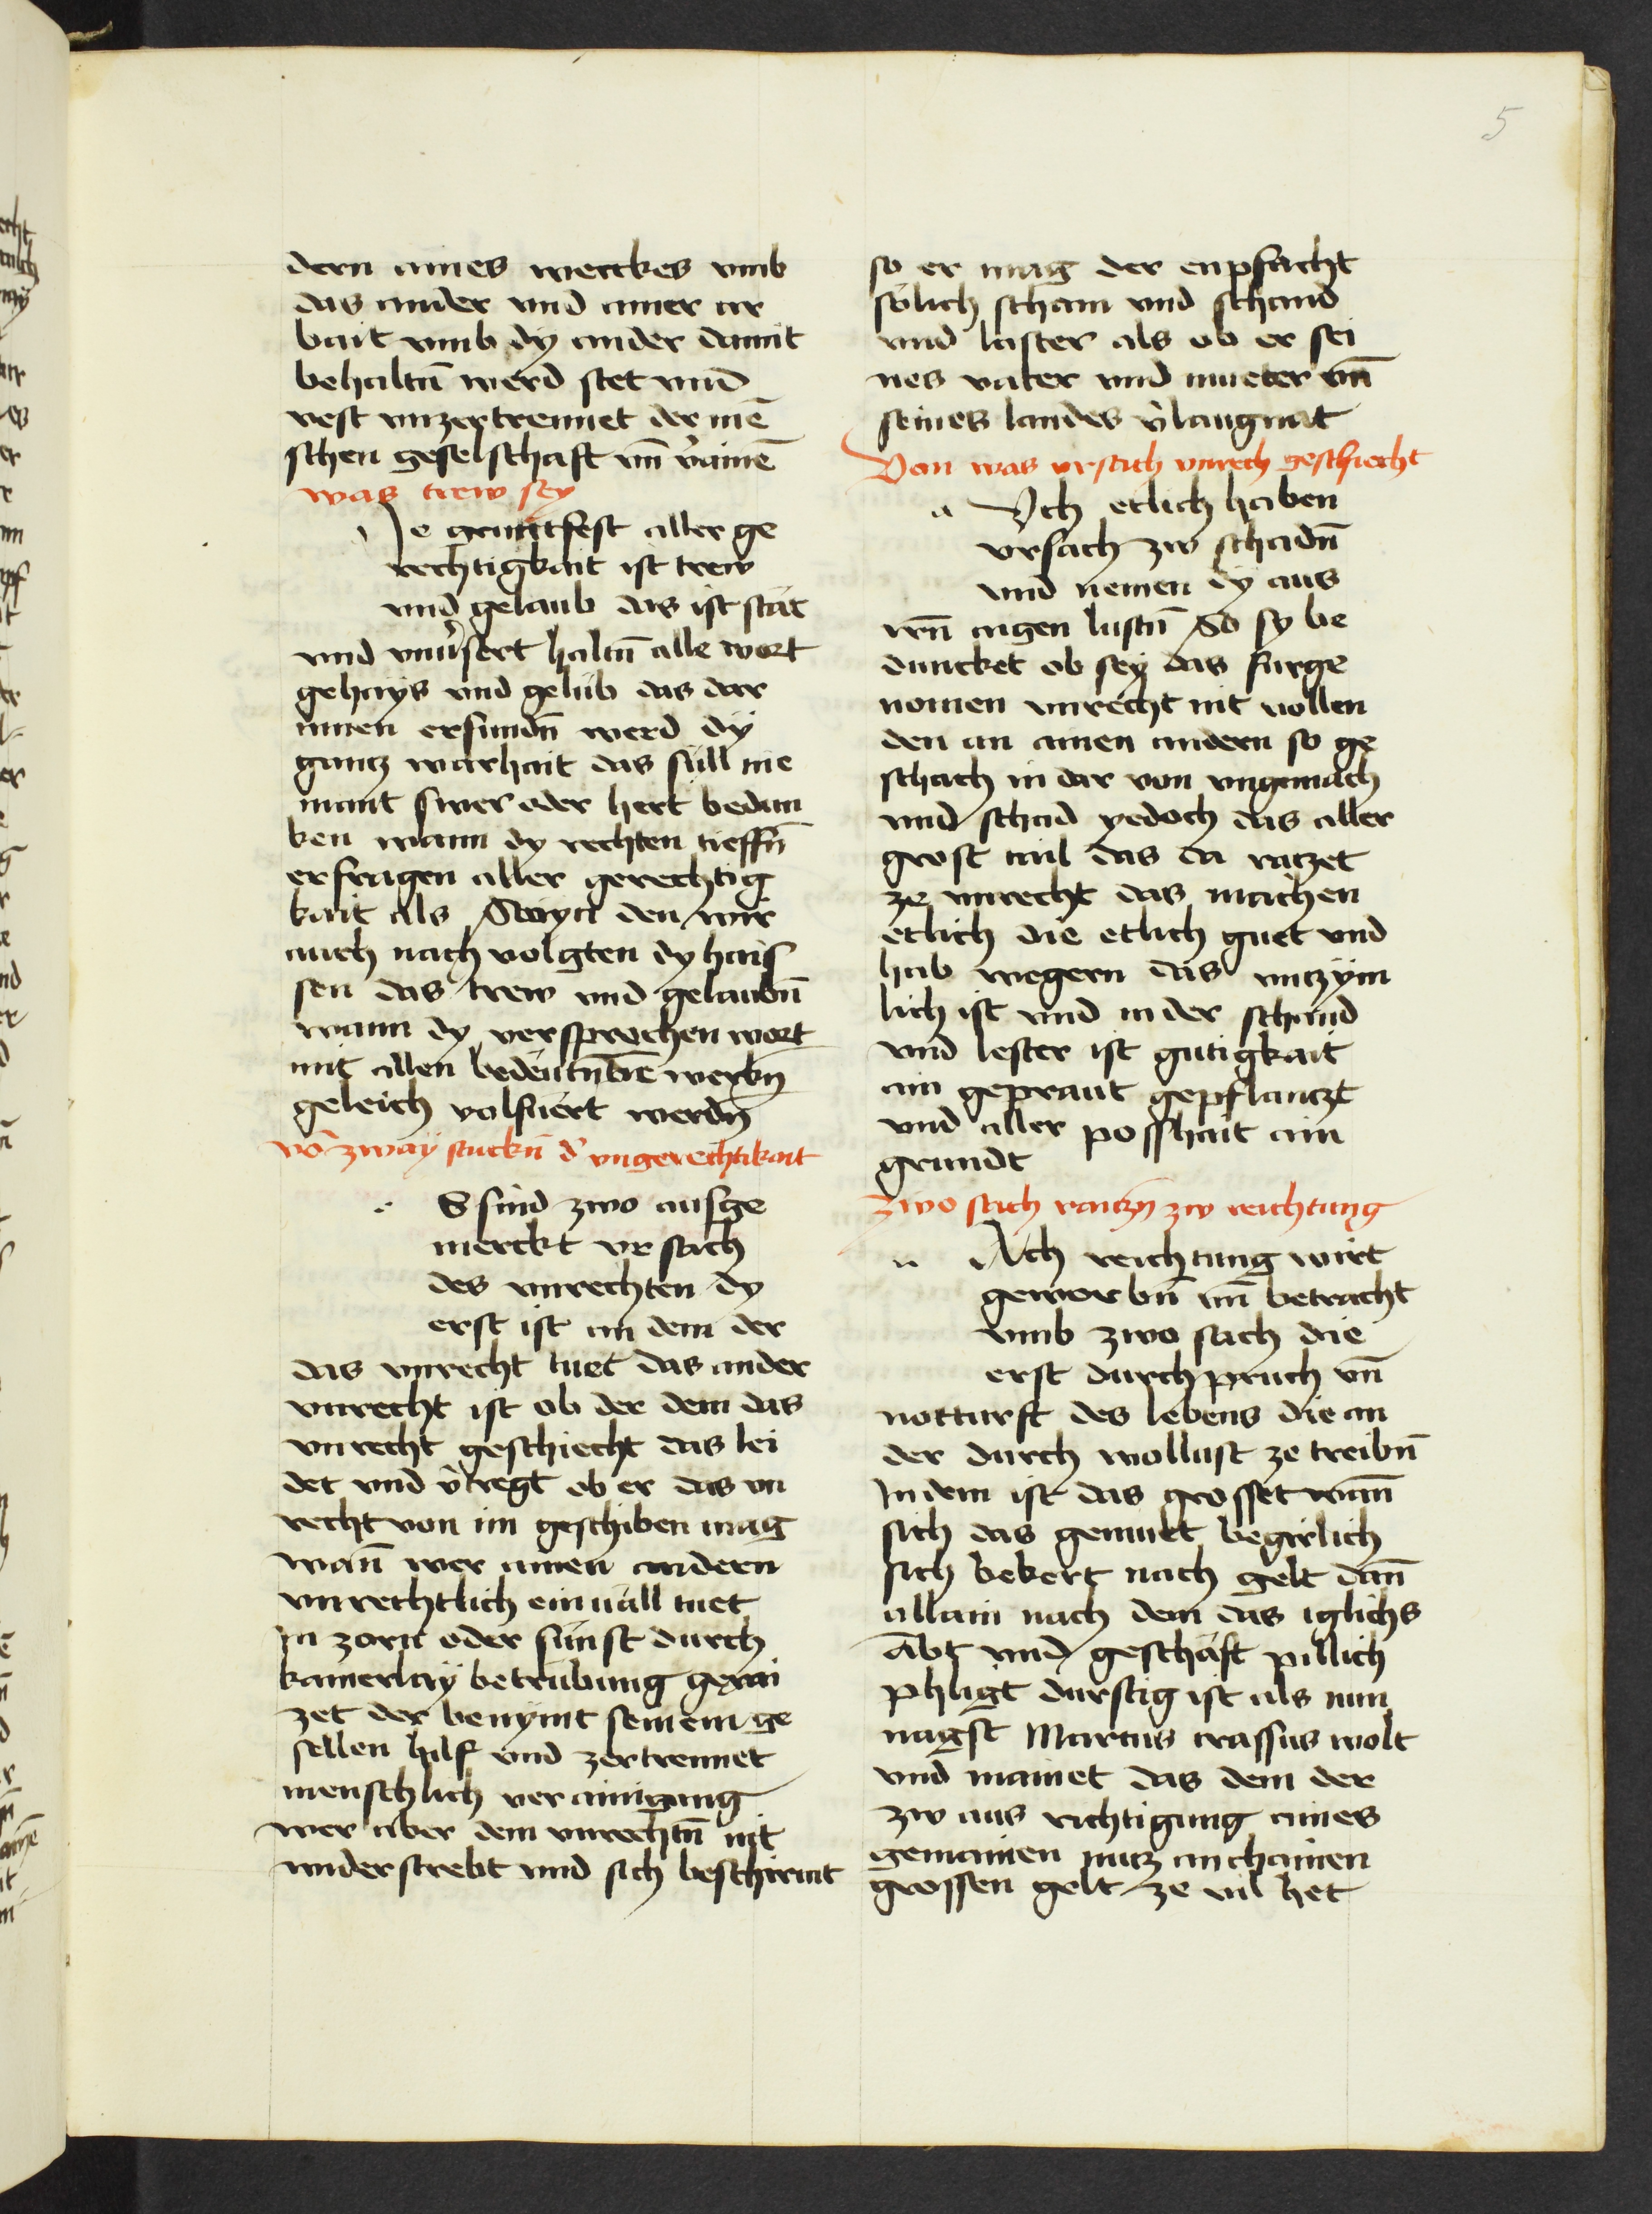 5
dern aines werckes vmb
das ander vnd ainer ar
bait vmb dÿ ander damit
behaltn̄ werd stet vnd
vest vnzertrennet der mē
schen geselschaft vn̄ v̉ainē
was trew seÿ
Je gruntfest aller ge
rechtigkait ist trew
vnd gelaub das ist stät
vnd vnuˀsert haltn̄ alle wort
gehaÿs vnd gelüb das dar
innen erfundn̄ werd dÿ
gantz warhait das süll nie
mant swer oder hert bedun
ken wann dy rechten tieffn̄
erfragen aller gerechtig
kait als Stoyci den wir
auch nach volgten dy hais
sen das trew vnd gelaubn̄
wann dy versprochen wort
mit allen bedeutnden werkn̄
geleich volfuert werdn̄
võ zwaÿ stuckn̄ dˀ vngerechtikait
S sind zwo aufge
merckt vrsach
des vnrechten dy
erst ist an dem der
das vnrecht tuet das ander
vnrecht ist ob der dem das
vnrecht geschiecht das lei
det vnd v̉tregt ob er das vn
recht von im geschiben mag
wan̄ wer ainen andern
vnrechtlich ein uäll tuet
In zorn oder sünst durch
kainerlaÿ betrübung gerai
zet der benymt seinem ge
sellen hilf vnd zertrennet
menschlich verainigung
wer aber dem vnrechtn̄ nit
widerstrebt vnd sich beschirmt
so er mag der enpfächt
sölich scham vnd schand
vnd laster als ob er sei
nes vater vnd mueter vn̄
seines landes v̉laugnat
Von was vrsach vnrech geschiecht
Vch etlich haben
vrsach zw schadn̄
vnd nemen dÿ aus
irn̄ aigen lustn̄ So sy be
duncket ob seÿ das fürge
nomen vnrecht nit vollen
den an ainen andern so ge
schäch in dar von vngemach
vnd schad yedoch das aller
grost tail das da raizet
ze vnrecht das machen
etlich die etlich guet vnd
hab wegern das vnzÿm
lich ist vnd in der schand
vnd lester ist gütigkait
ain gepraut gepflanczt
vnd aller posshait ain
grundt
Zwo sach raitzn̄ zw reichtung
Ach reichtung wirt
geworbn̄ vn̄ betracht
vmb zwo sach die
erst durch pruch vn̄
notturft des lebens die an
der durch wollust ze treibn̄
In dem ist das grosset wan̄
sich das gemuet begirlich
sich bekert nach gelt dan̄
allain nach dem das iglichs
ābt vnd geschäft pillich
phligt durstig ist als nun
nagst Marcus crassus wolt
vnd mainet das dem der
zw aus richtigung aines
gemainen nutz an chainen
grossen gelt ze vil het